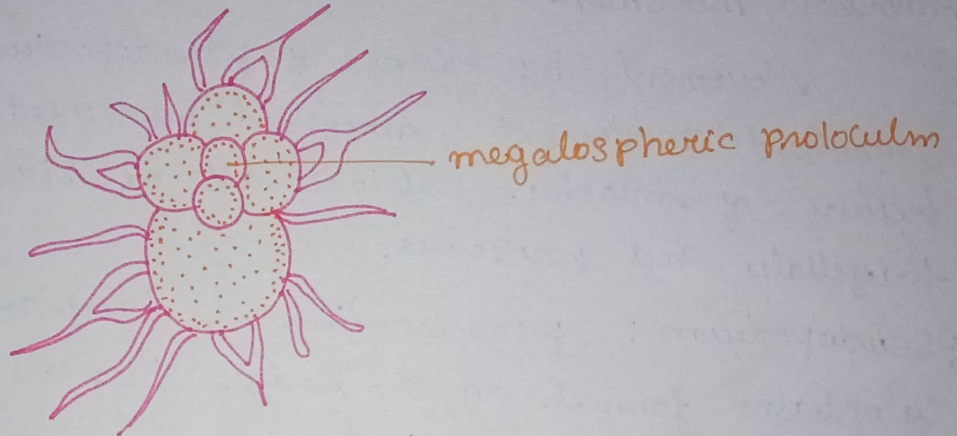 megalospheric proloculm